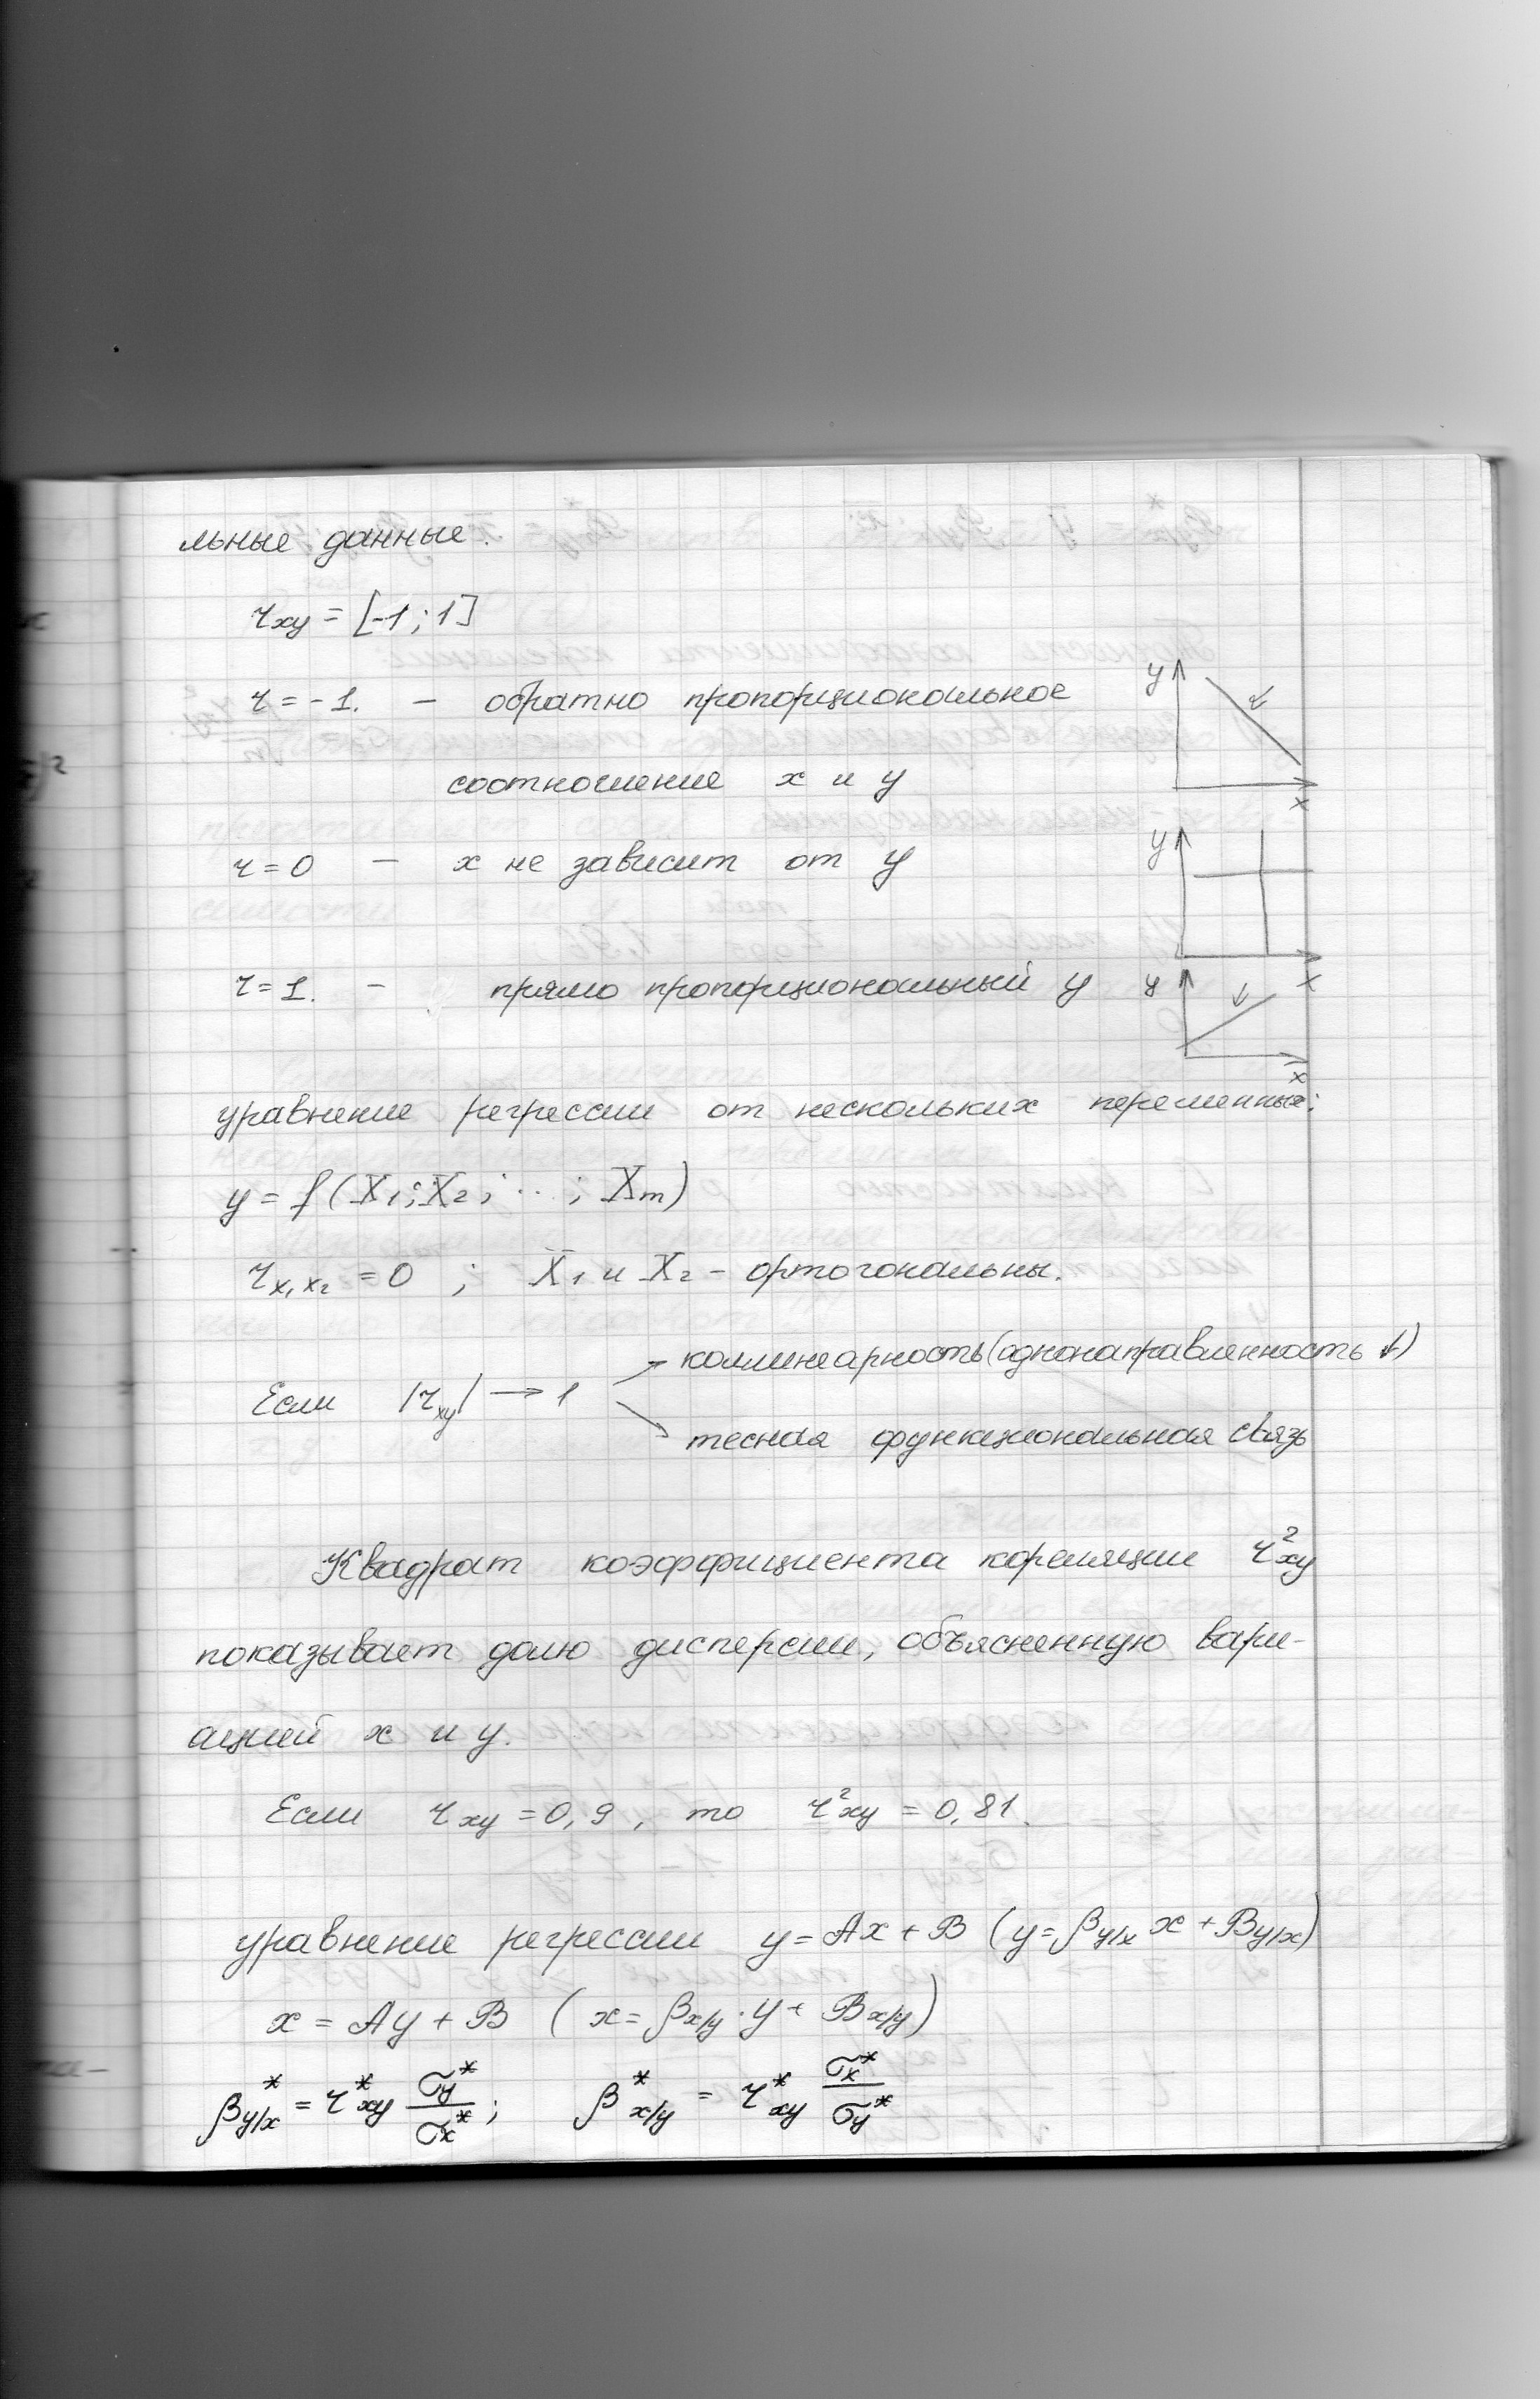 льные данные.
r_xy = [-1; 1]
r = -1. — обратно пропорциональное
соотношение x и y
y
x
r = 0 — x не зависит от y
y
x
r = 1. — прямо пропорциональный y
y
x
уравнение регрессии от нескольких переменных:
y = f(X₁; X₂; ...; Xm)
r_x₁x₂ = 0 ; X₁ и X₂ - ортогональны.
коллинеарность (однонаправленность ↓)
Если |r_xy| → 1
тесная функциональная связь
Квадрат коэффициента кореляции r²xy
показывает долю дисперсии, объясненную вари-
ацией x и y.
Если r_xy = 0,9, то r²xy = 0,81.
уравнение регрессии y = Ax + B (y = β_y/x x + B_y/x)
x = Ay + B ( x = β_x/y · y + B_x/y)
β*_y/x = r*_xy σy*/σx* ; β*_x/y = r*_xy σx*/σy*